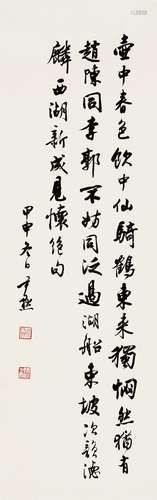 壺中春色飲中仙騎鶴東來獨惘然猶有
趙陳同李郭不妨同泛過湖船東坡次韻德
麟西湖新成見懷絕句
甲申冬日尹默